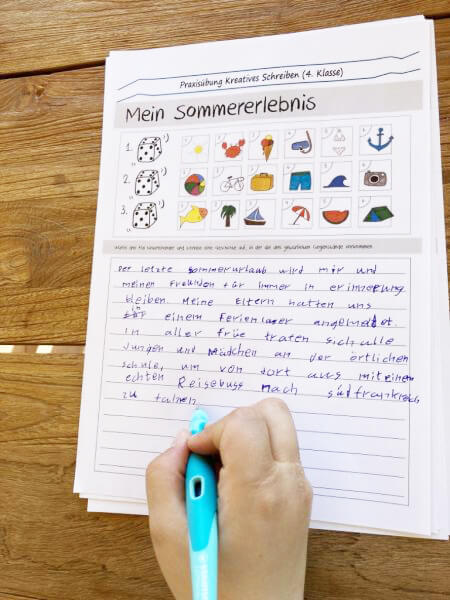 Praxisübung Kreatives Schreiben (4. Klasse)
Mein Sommererlebnis
1.
2.
3.
Der letzte sommerurlaub wird mir und
meinen Freunden für immer in erinnerung
bleiben. Meine Eltern hatten uns
in einem Ferienlager angemeldet.
In aller früe traten sich alle
Jungen und Mädchen an der örtlichen
schule, um von dort aus mit einem
echten Reisebuss nach südfrankreich
zu fahren